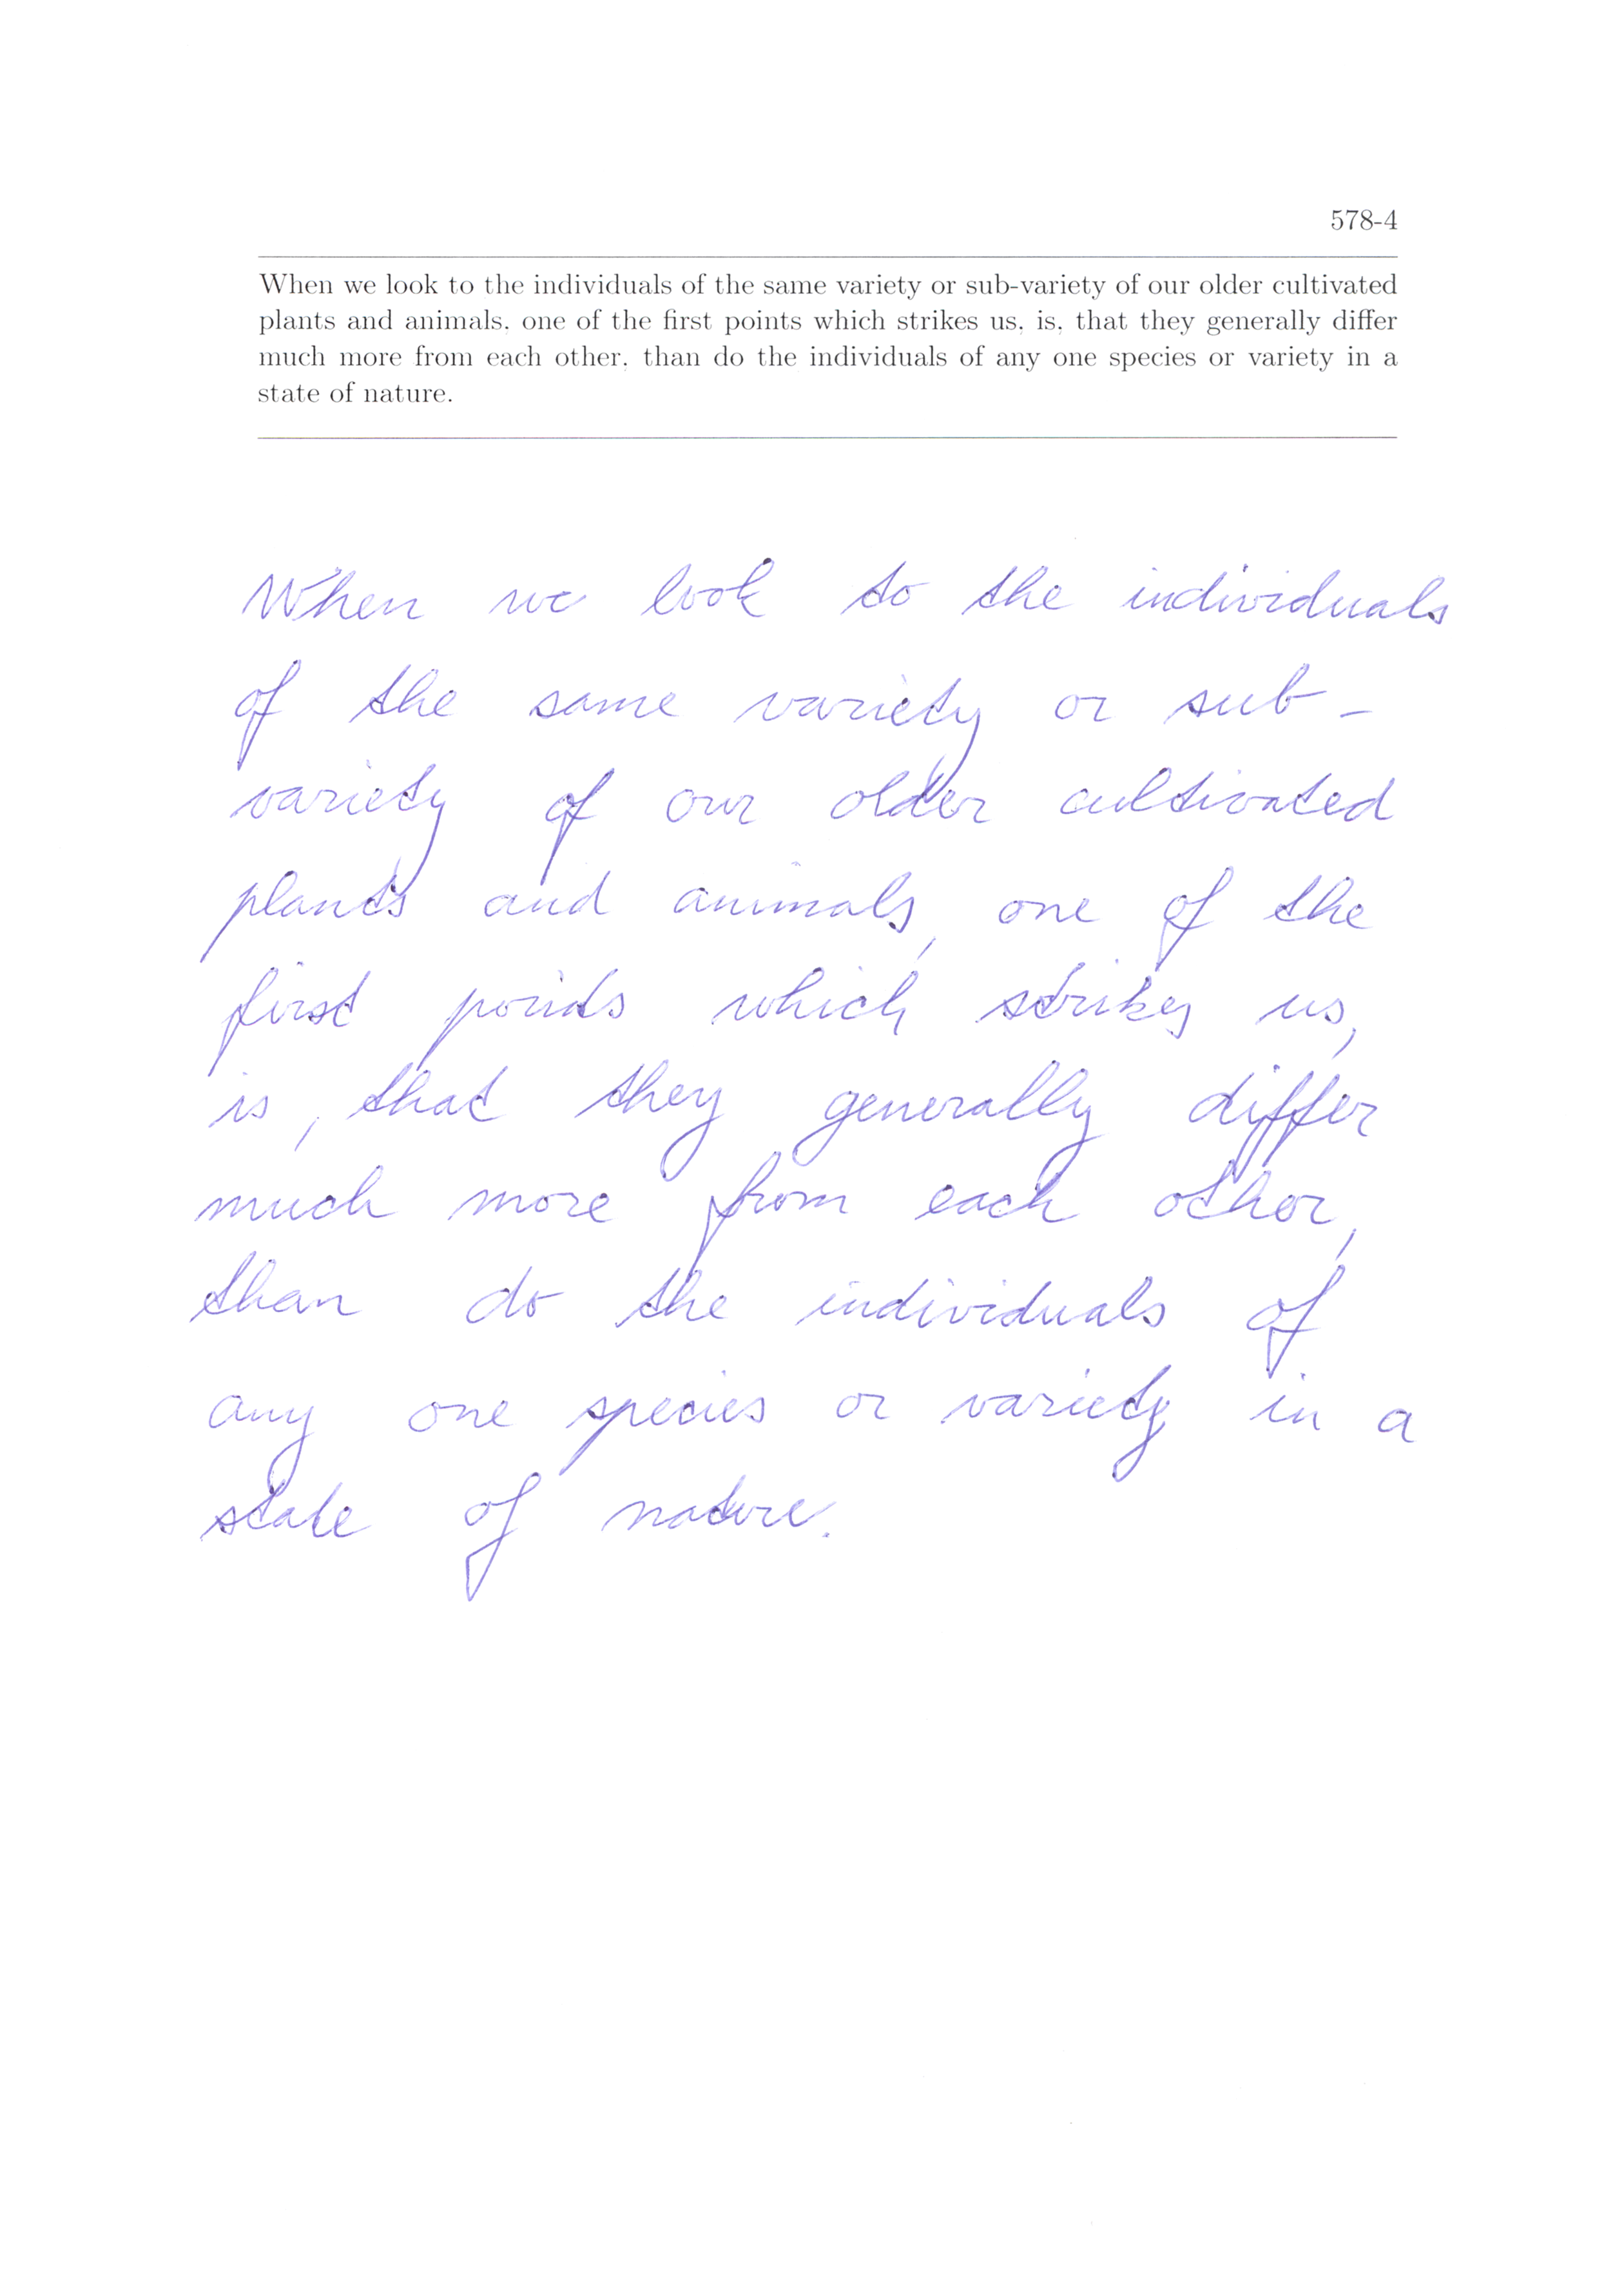 578-4
When we look to the individuals of the same variety or sub-variety of our older cultivated
plants and animals, one of the first points which strikes us, is, that they generally differ
much more from each other, than do the individuals of any one species or variety in a
state of nature.
When we look to the individuals
of the same variety or sub-
variety of our older cultivated
plants and animals, one of the
first points which strikes us,
is, that they generally differ
much more from each other,
than do the individuals of
any one species or variety in a
state of nature.